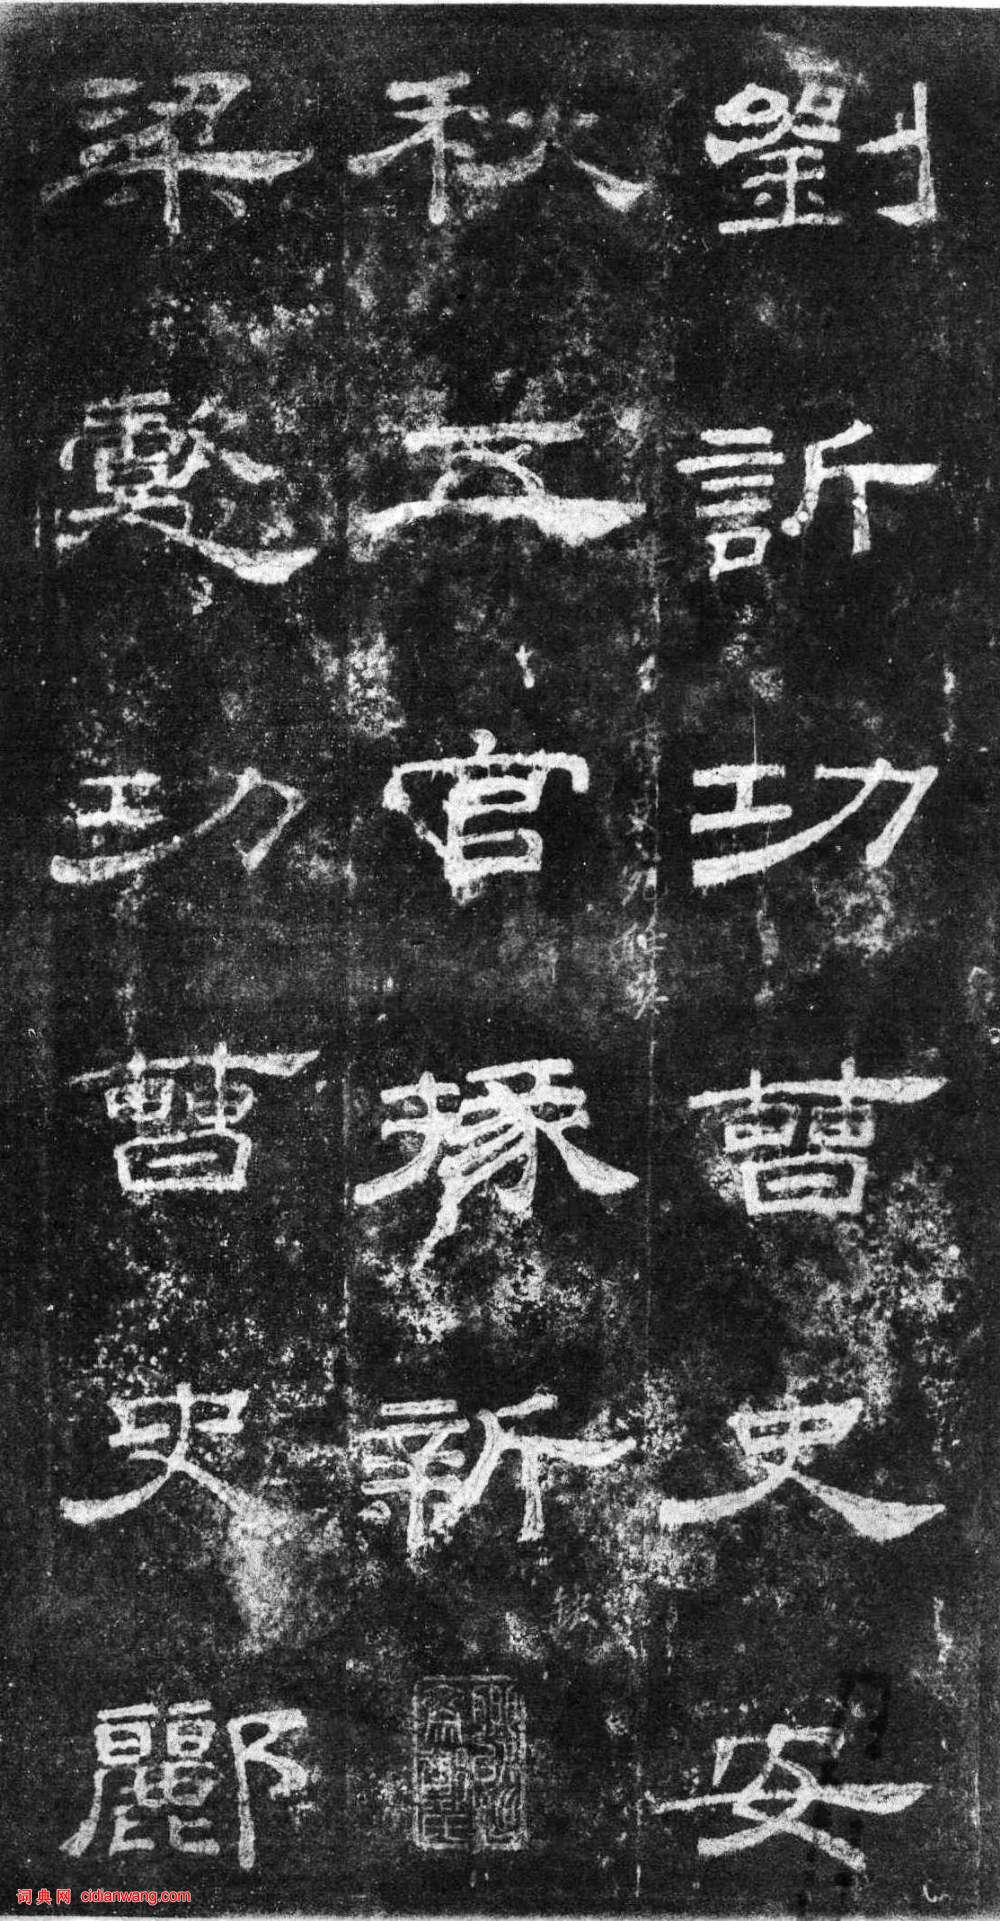 劉訢功曹史安
秋五官掾新
梁懿功曹史酈
词典网 cidianwang.com